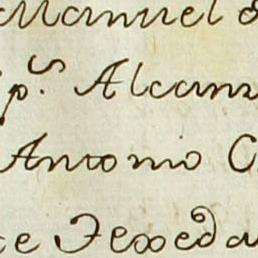 Manuel
p.s Alcan
Antonio C
ce Texeda